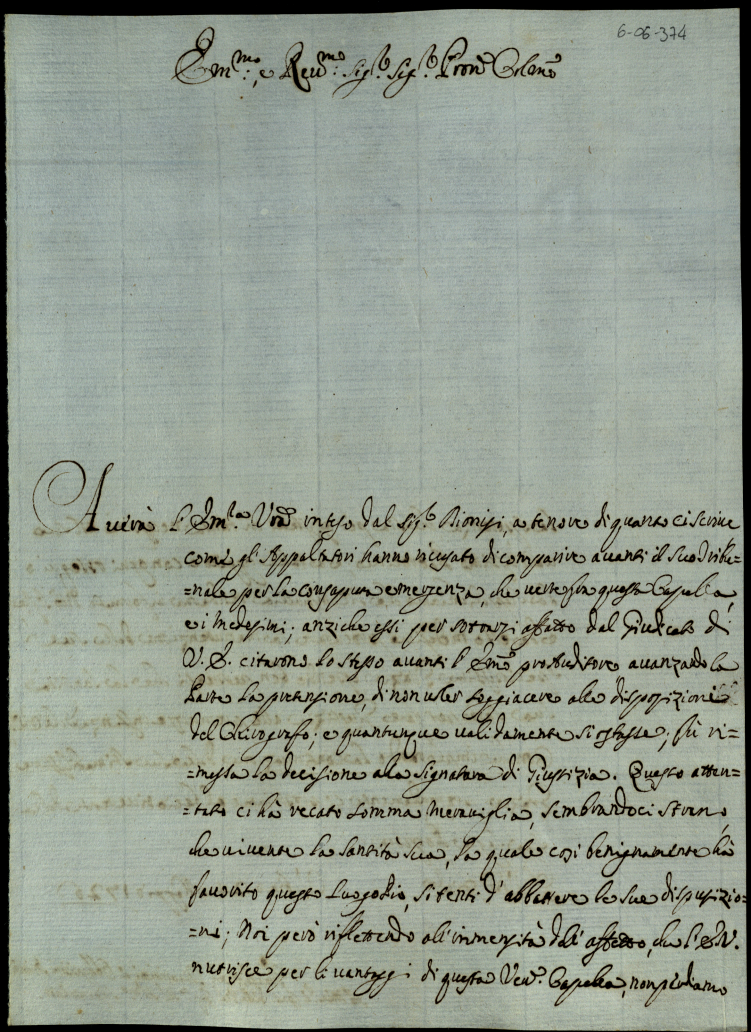 6-06-374
Em.mo, e Reu.mo Sig.r Sig.r Pron. Colmo
Auerà l'Em.za Vra inteso dal Sig.r Dionisi, a tenore di quanto ci scriue
come gl'Appaltatori hanno ricusato di comparire auanti il suo Tribu=
=nale per la consaputa emergenza, che uerte fra questa Capella,
e i medesimi; anzi che essi per sotrarsi affatto dal Giudicato di
V. E. citarono lo stesso auanti l'Emo pro Auditore auanzando la
Parte la pretensione, di non uoler soggiacere alle disposizioni
del Chirografo; e quantunque ualidamente si ostasse; fù ri=
=messa la decisione alla Signatura di Giustizia. Questo atten=
=tato ci hà recato somma merauiglia, sembrandoci strano,
che uiuente la Santità Sua, la quale così benignamente hà
fauorito questo Luogo Pio, si tenti d'abbattere le sue disposizio=
=ni; Noi però riflettendo all'immensità dell'affetto, che l'E.V.
nutrisce per li uantaggi di questa Ven. Capella, non perdiamo